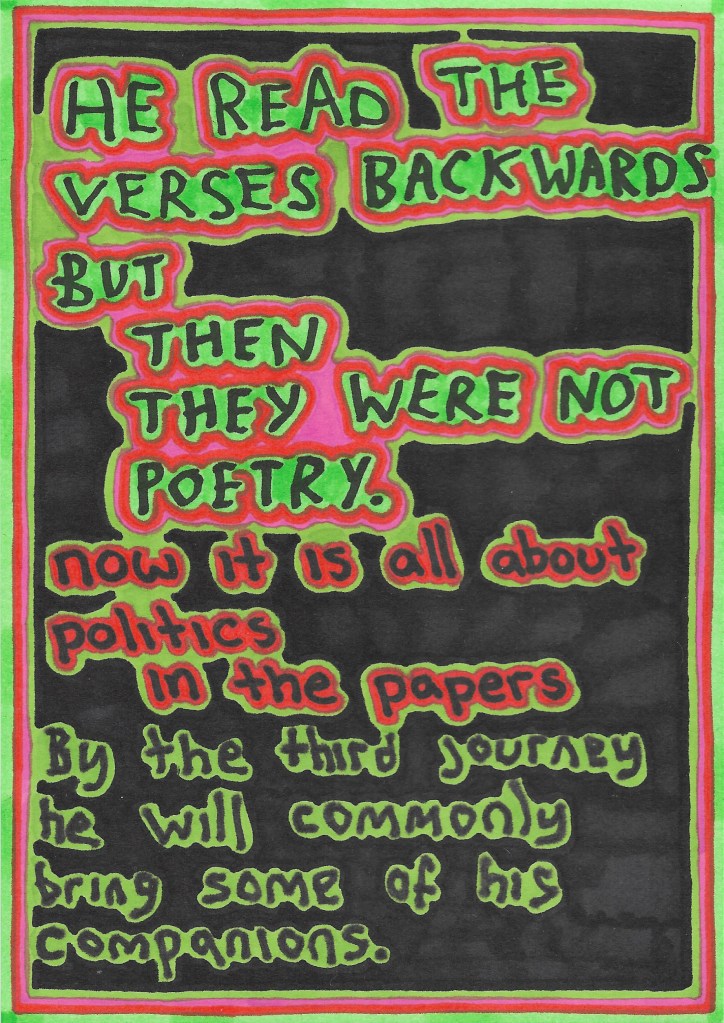 HE READ THE
VERSES BACKWARDS
BUT
THEN
THEY WERE NOT
POETRY.
now it is all about
politics
in the papers
By the third journey
he will commonly
bring some of his
companions.